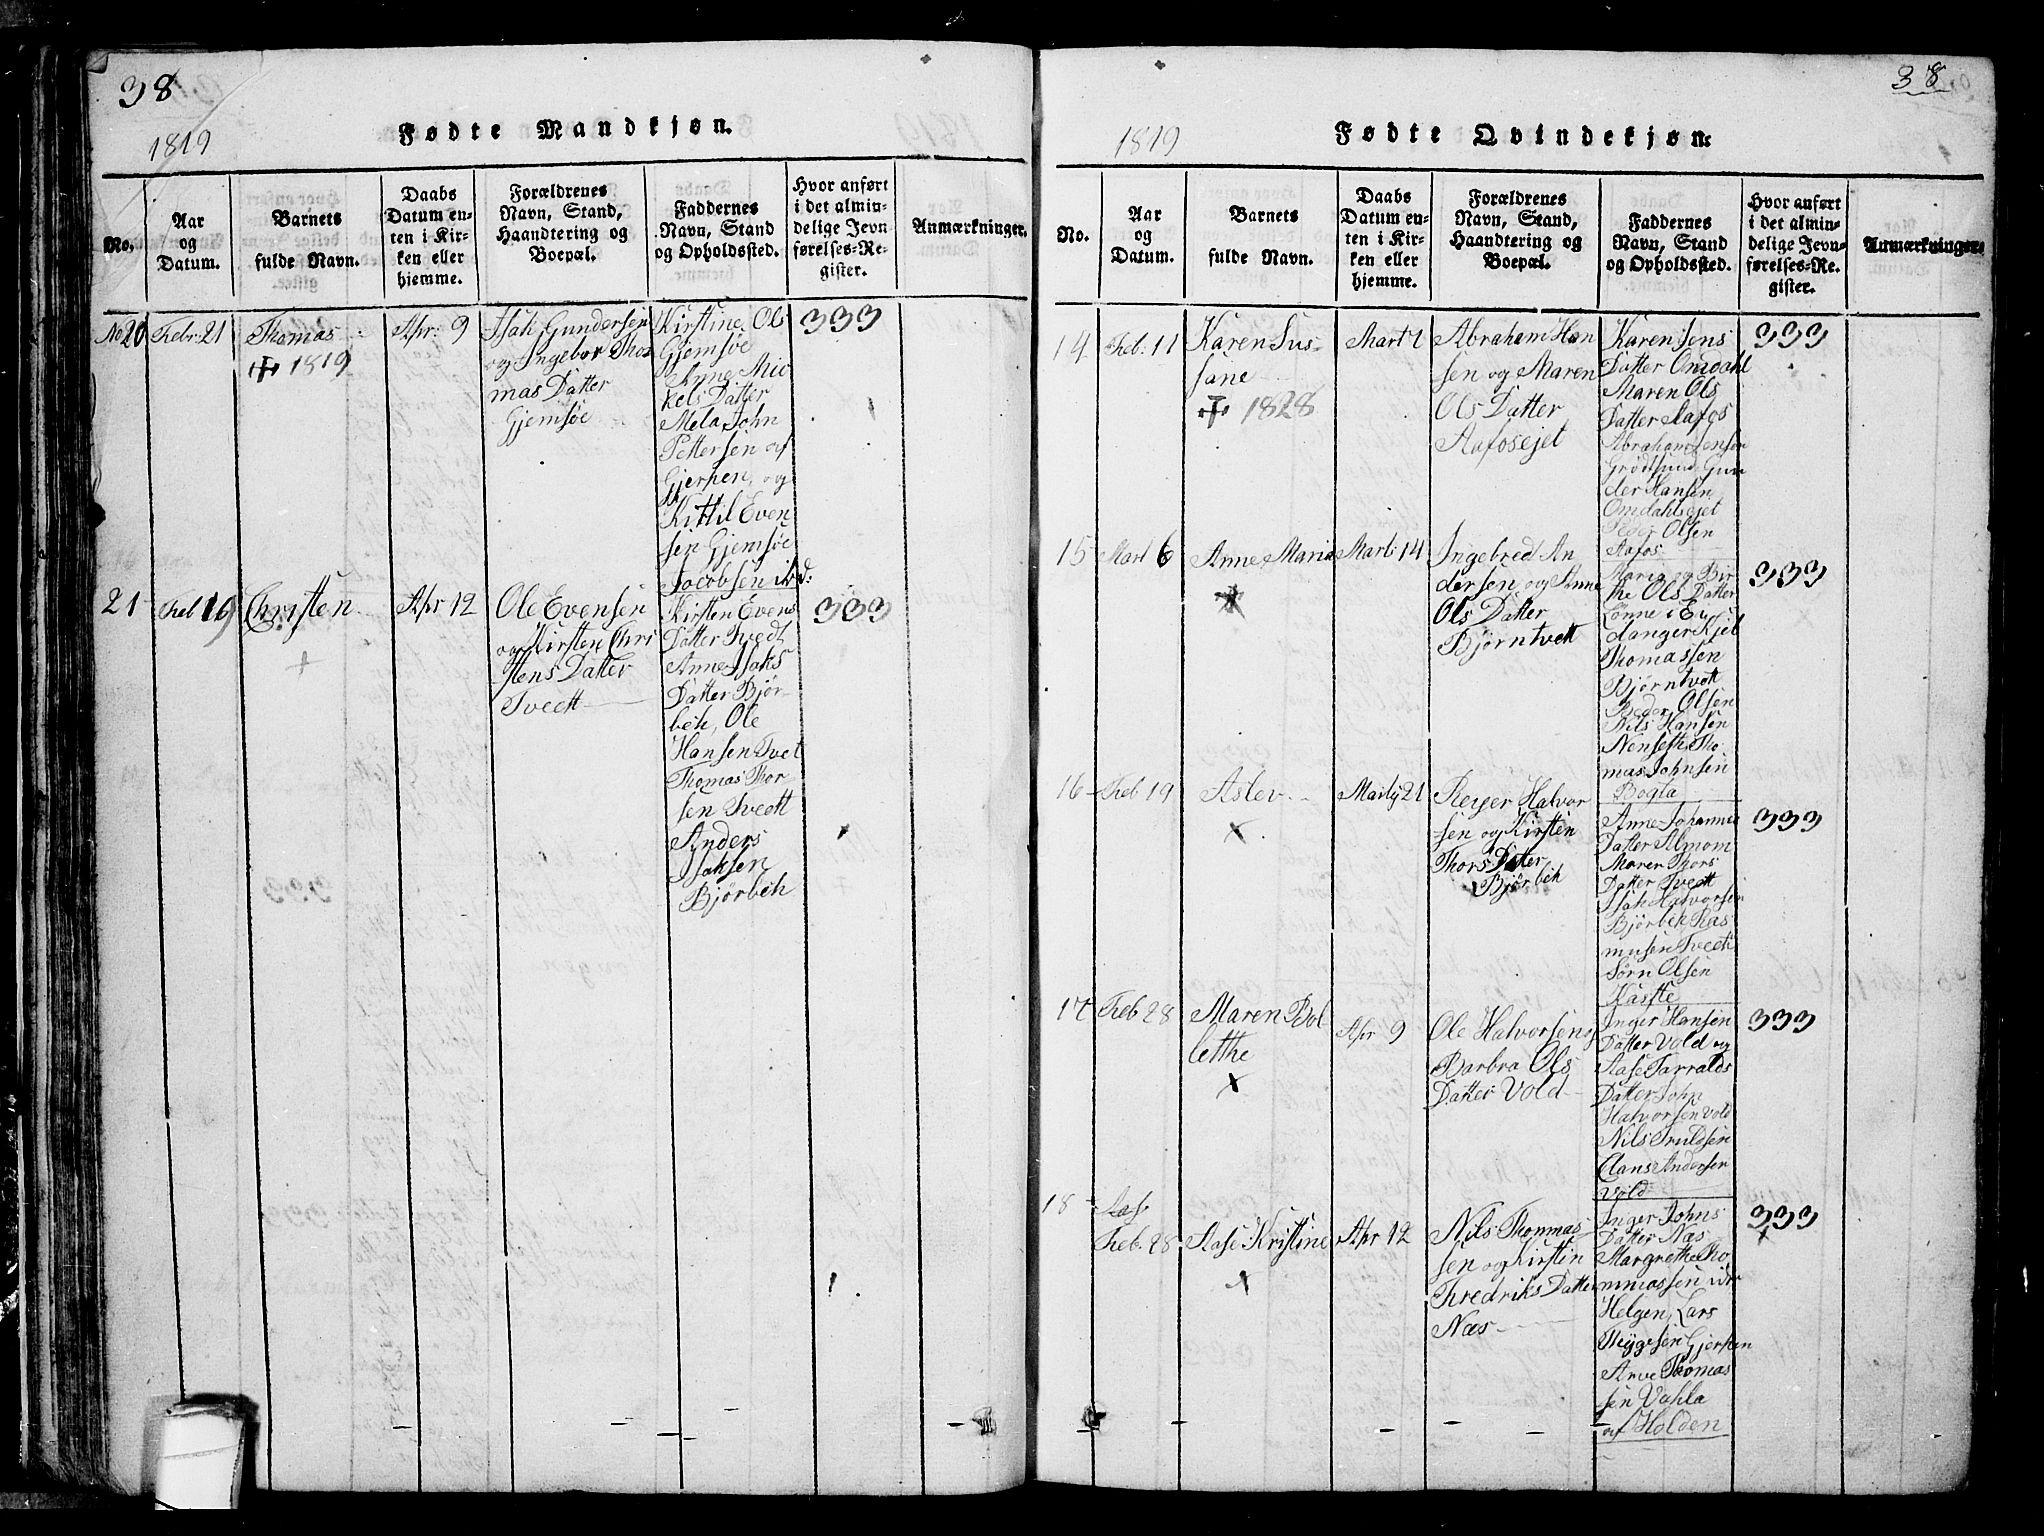 38
1819
Fødte Mandkjøn.
No.
Aar
og
Datum.
Barnets
fulde Navn.
Daabs
Datum en-
ten i Kir-
ken eller
hjemme.
Forældrenes
Navn, Stand,
Haandtering og
Boepæl.
Faddernes
Navn, Stand
og Opholdssted.
Hvor anført
i det almin-
delige Jevn
førelses-Re-
gister.
Anmærkninger.
No 20
Febr: 21
Thomas
1819
Apr: 9
Isak Gundersen
og Ingebor Tho
mas Datter
Gjemsøe
Kirstine Ols
Gjemsøe
Anne Mic
kels Datter
Mela John
Pettersen af
Gjerpen, og
Kittil Even
sen Gjemsøe
Jacobsen ibd:
333
21
Feb 19
Christen
+
Apr 12
Ole Evensen
og Kirsten Chri
stens Datter
Tvedt
Kirsten Evens
Datter Tvedt
Anne Isaks
Datter Bjør-
bek, Ole
Hansen Tvet
Thomas Thor
sen Tvedt
Anders
Isaksen
Bjørbek
333
38
1819
Fødte Qvindekjøn.
No.
Aar
og
Datum.
Barnets
fulde Navn.
Daabs
Datum en-
ten i Kir-
ken eller
hjemme.
Forældrenes
Navn, Stand,
Haandtering og
Boepæl.
Faddernes
Navn, Stand
og Opholdssted.
Hvor anført
i det almin-
delige Jevn-
førelses-Re-
gister.
Anmærkninger.
14
Feb: 11
Karen Sus-
sane
1828
Mart 7
Abraham Han
sen og Maren
Ols Datter
Aafosejet
Karen Jens
Datter Omdahl
Maren Ols
Datter Aafos
Abraham Jensen
Grødsund Gun
der Hansen
Omdahlsejet
Peder Olsen
Aafos
333
15
Mart 6
Anne Maria
Mart: 14
Ingebred An
dersen og Anne
Ols Datter
Bjørntvett
Maria og Bir
the Ols Datter
Lønne i Ei
danger Kjel
Thomassen
Bjørntvett
Peder Olsen
Nils Hansen
Nenseth Tho
mas Johnsen
Bogla
333
16
Feb 19
Aslev
x
Martij 21
Reyer Halvor
sen og Kirsten
Thors Datter
Bjørbek
Anne Johannes
Datter Almom
Maren Thors
Datter Tvedt
Isak Halvorsen
Bjørbek Ras
musen Tvedt
Sørn Olsen
Kaste
333
17
Feb 28
Maren Bol
lethe
x
Apr 9
Ole Halvorsen og
Barbra Ols
Datter Vold
Inger Hansen
Datter Vold og
Aase Tarralds
Datter John
Halvorsen Vold
Nils Truldsen
Clans Andersen
Vold
333
18
Feb. 28
Aase Kristine
x
Apr 12
Nils Thommas
sen og Kirsten
Fredriks Datter
Næs
Inger Johns
Datter Næs
Margrethe Tho
mmassen
Helgen, Lars
Heygesen Gjerpen
Anve Thomas
sen Vahla
af Holden
333
x